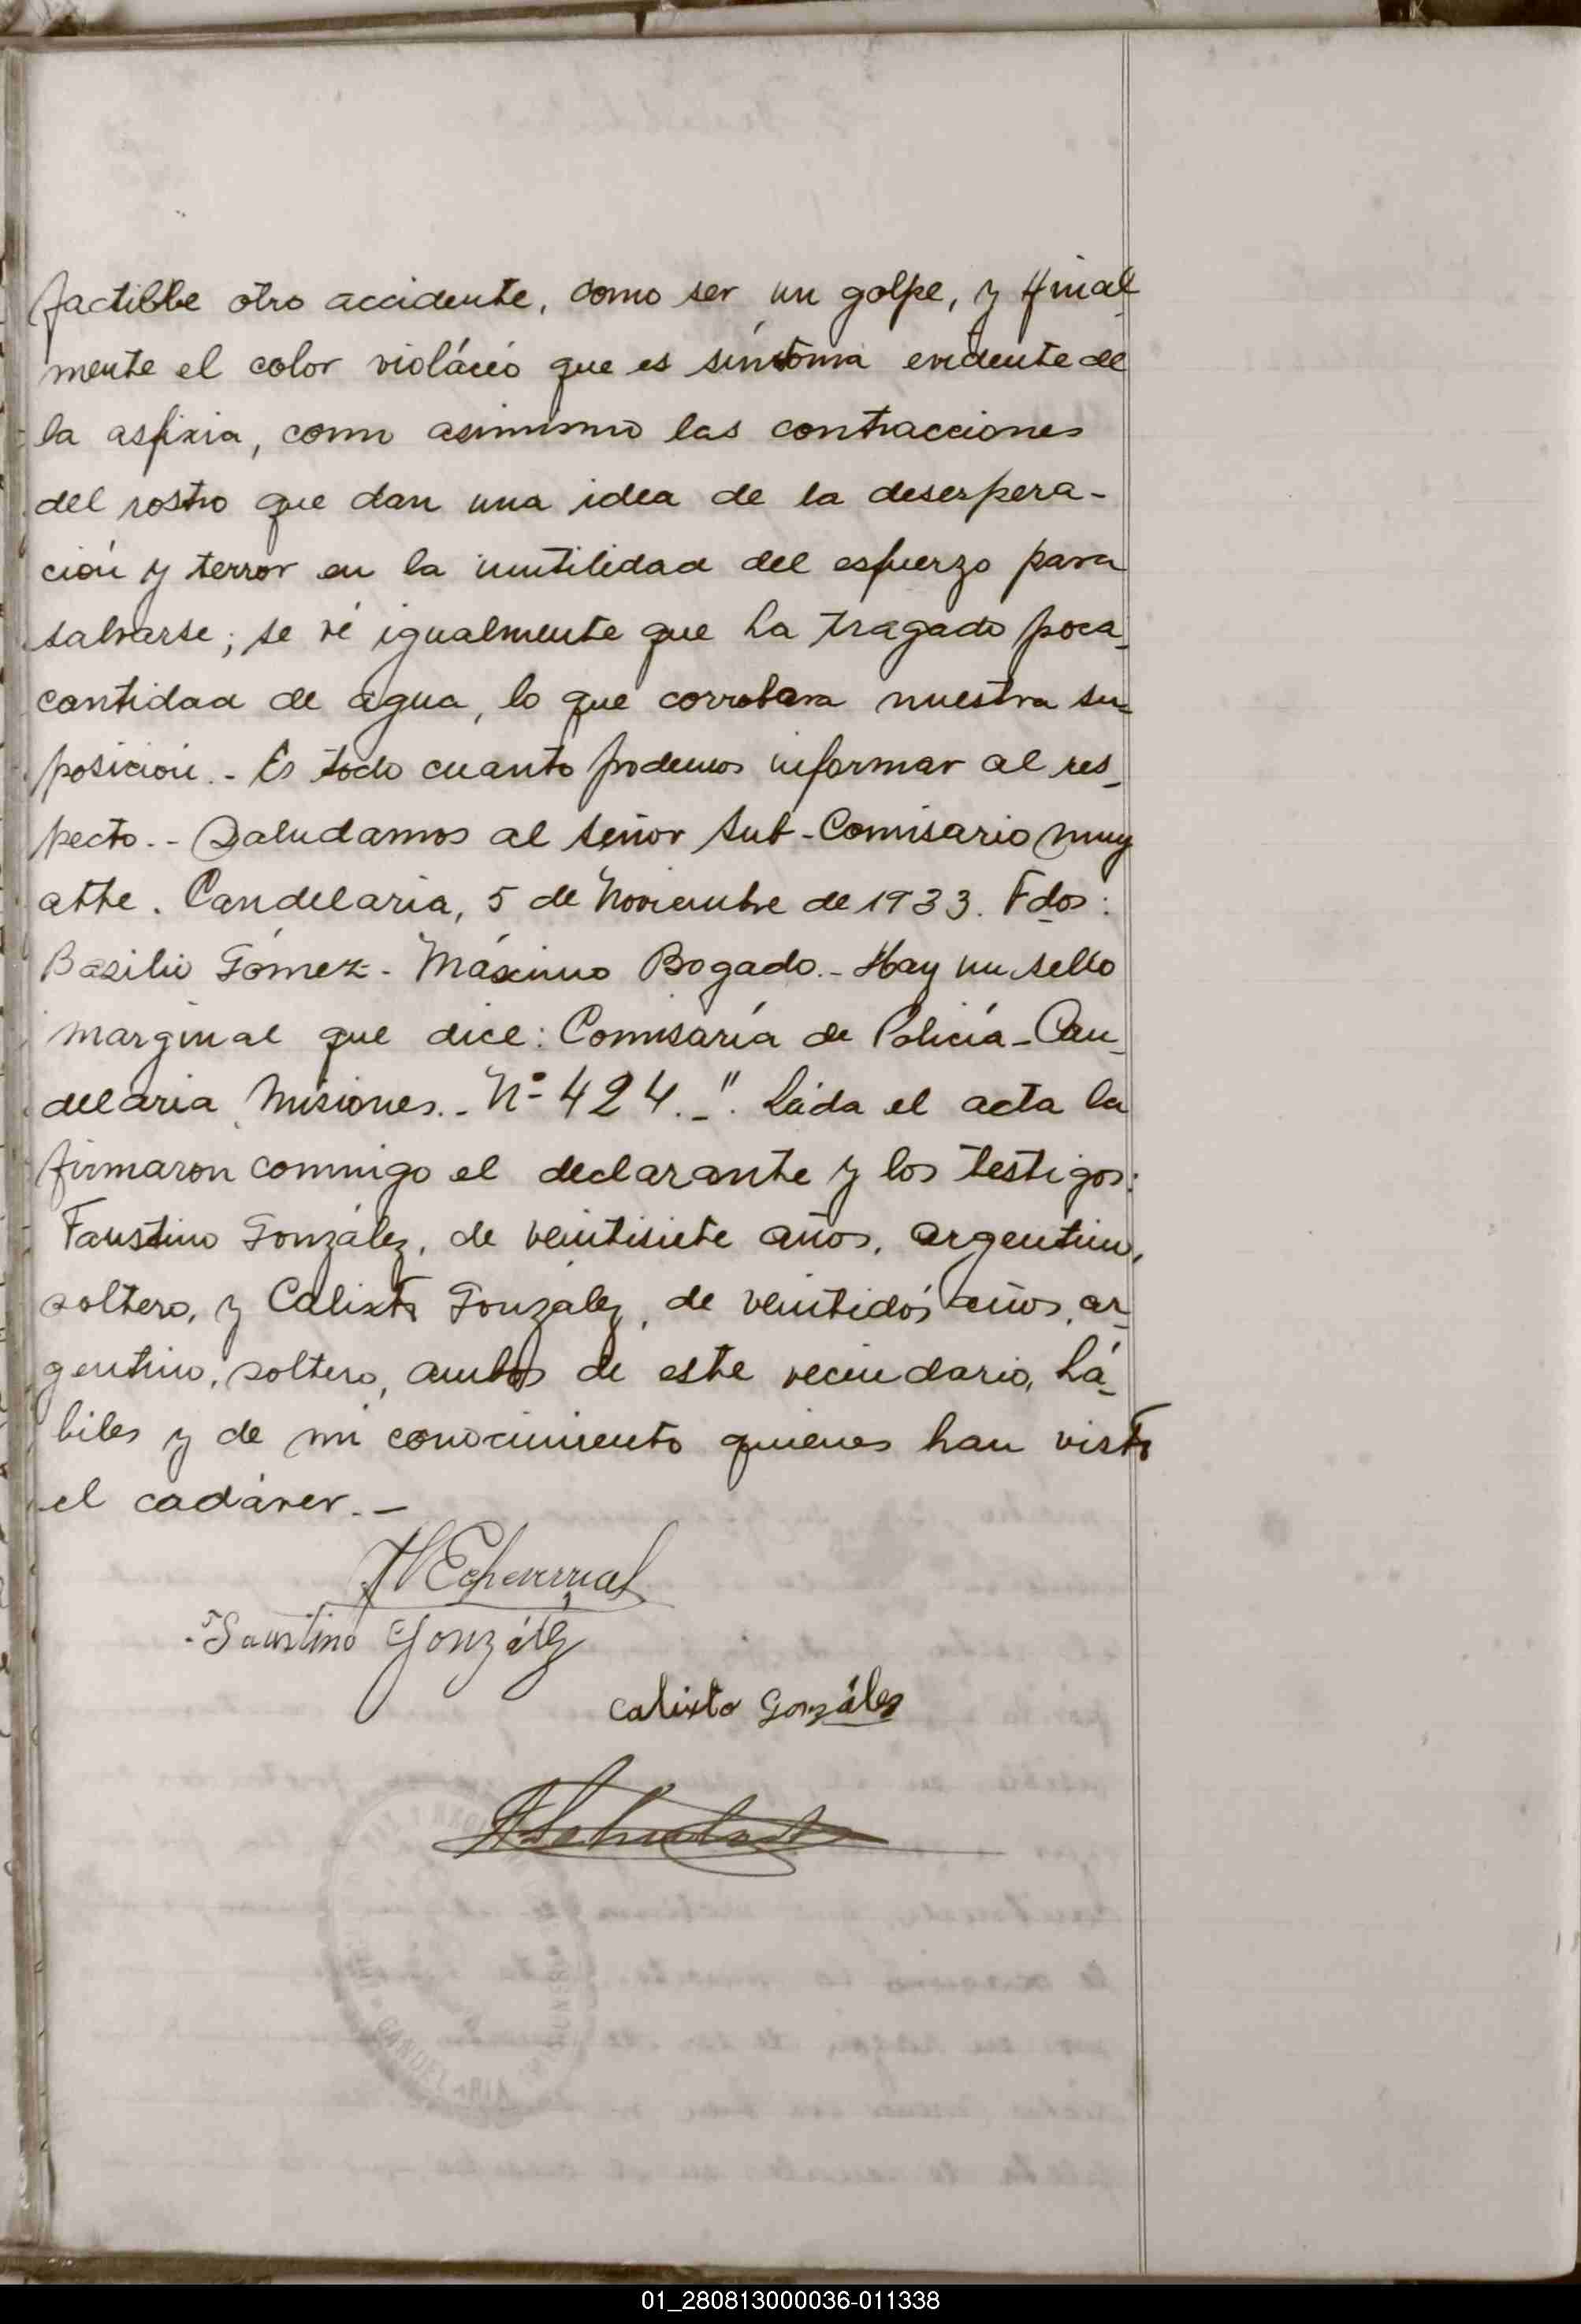 factible otro accidente, como ser un golpe, y final
mente el color violáceo que es síntoma evidente de
la asfixia, como asimismo las contracciones
del rostro que dan una idea de la deserpera-
ción y terror en la inutilidad del esfuerzo para
salvarse; se vé igualmente que ha tragado poca
cantidad de agua, lo que corrobara nuestra su-
posición.- Es todo cuanto podemos informar al res-
pecto.- Saludamos al señor Sub-Comisario muy
atte. Candelaria, 5 de Noviembre de 1933. Fdos:
Basilio Gómez - Máximo Bogado.- Hay un sello
marginal que dice: Comisaría de Policía - Can-
delaria Misiones.- Nº 424.-". Leída el acta la
firmaron conmigo el declarante y los testigos:
Faustino González, de veintisiete años, argentino,
soltero, y Calixto González, de veintidós años, ar-
gentino, soltero, ambos de este vecindario, há-
biles y de mi conocimiento quienes han visto
el cadáver.-
Faustino González
Calixto Gonzáles
CANDELARIA
01_280813000036-011338